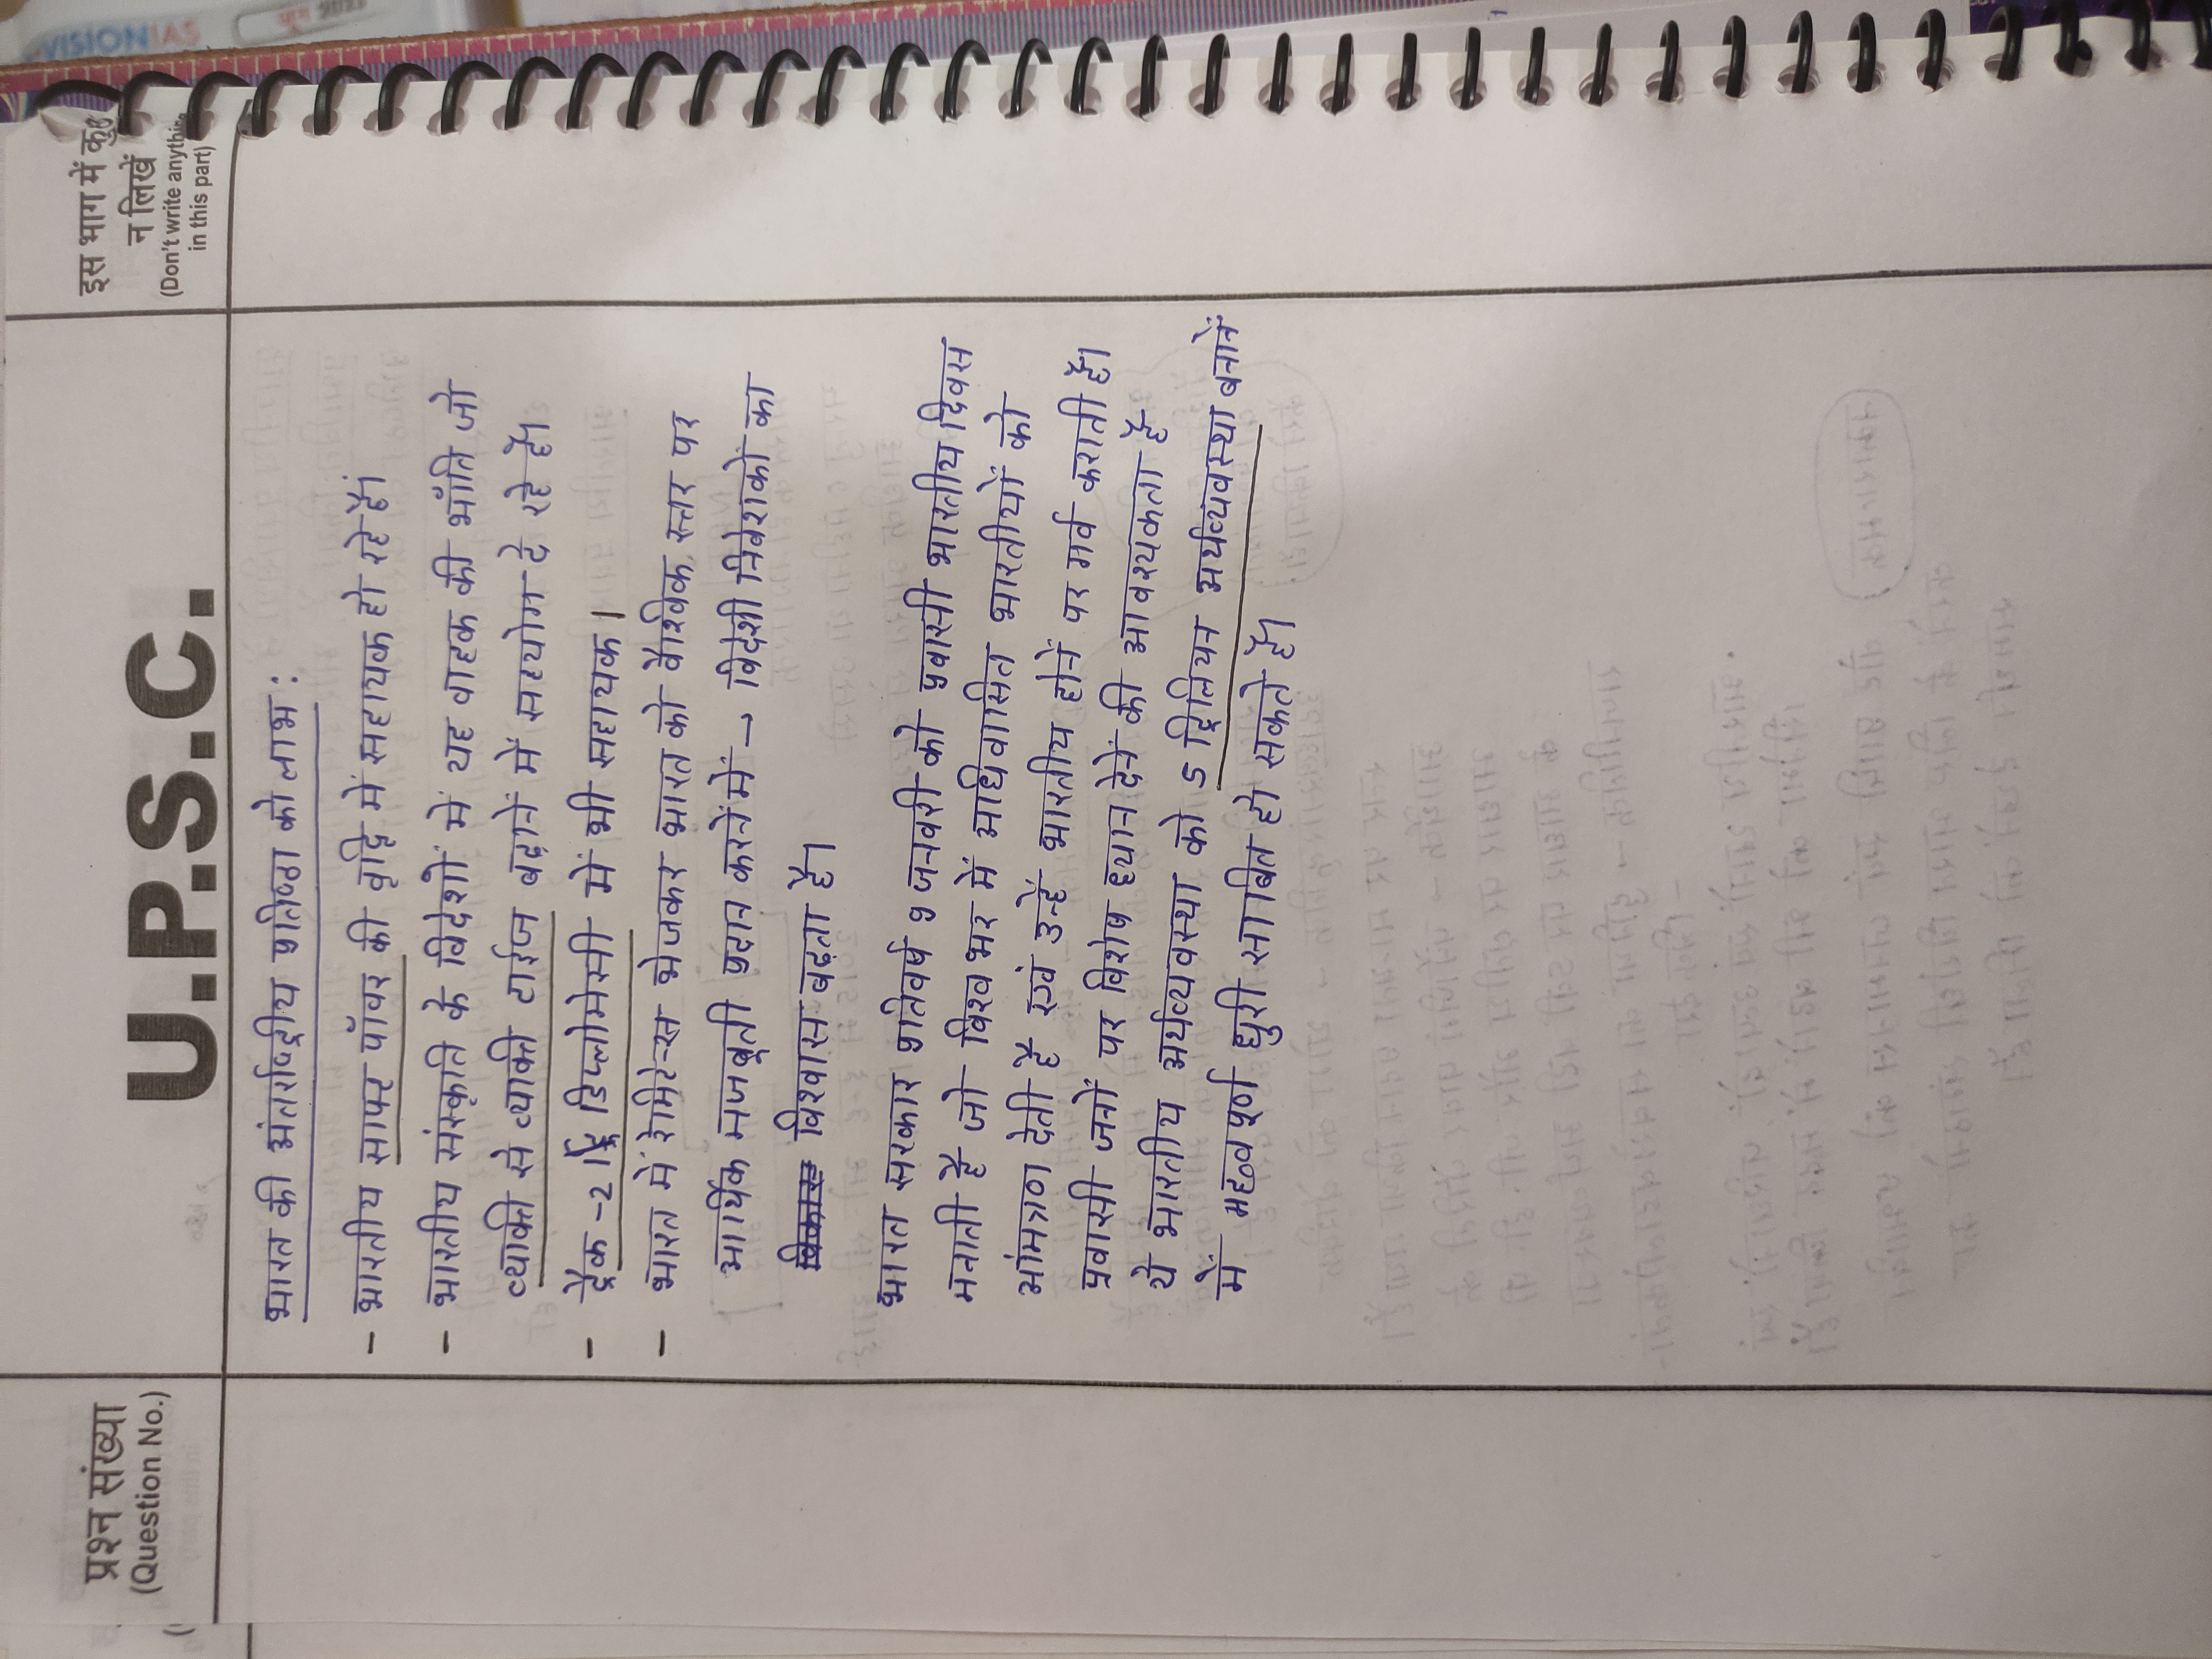 VISIONIAS
प्रश्न संख्या
(Question No.)
U.P.S.C.
इस भाग में कुछ
न लिखें
(Don't write anything
in this part)
भारत की अंतर्राष्ट्रीय प्रतिष्ठा को लाभ :
- भारतीय साफ्ट पॉवर की वृद्धि में सहायक हो रहे हैं।
- भारतीय संस्कृति के विदेशों में यह वाहक की भाँति जो
व्यक्ति से व्यक्ति टाईज बढ़ानें में सहयोग दे रहे हैं।
- ट्रैक -2 डिप्लोमेसी में भी सहायक।
- भारत में रेमिटेन्स भेजकर भारत को वैश्विक स्तर पर
आर्थिक मजबूती प्रदान करनें में → विदेशी निवेशकों का
विकास विश्वास बढ़ता है।
भारत सरकार प्रतिवर्ष 9 जनवरी को प्रवासी भारतीय दिवस
मनाती है जो विश्व भर में अधिवासित भारतीयों को
आंमत्रण देती है एवं उन्हें भारतीय होनें पर गर्व कराती है।
प्रवासी जनों पर विशेष ध्यान देनें की आवश्यकता है
ये भारतीय अर्थव्यवस्था को 5 ट्रिलियन अर्थव्यवस्था बनानें
में महत्वपूर्ण धुरी साबित हो सकते हैं।